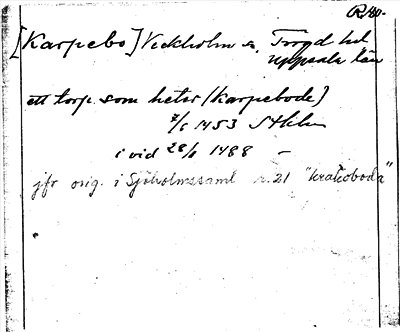 [Karpebo] Veckholm s. Trögd hd
Uppsala län
ett torp som heter (Karpebode)
7/5 1453 Sthlm
i vid 28/8 1488 —
jfr orig. i Sjöholmssaml n. 21 "krakoboda"